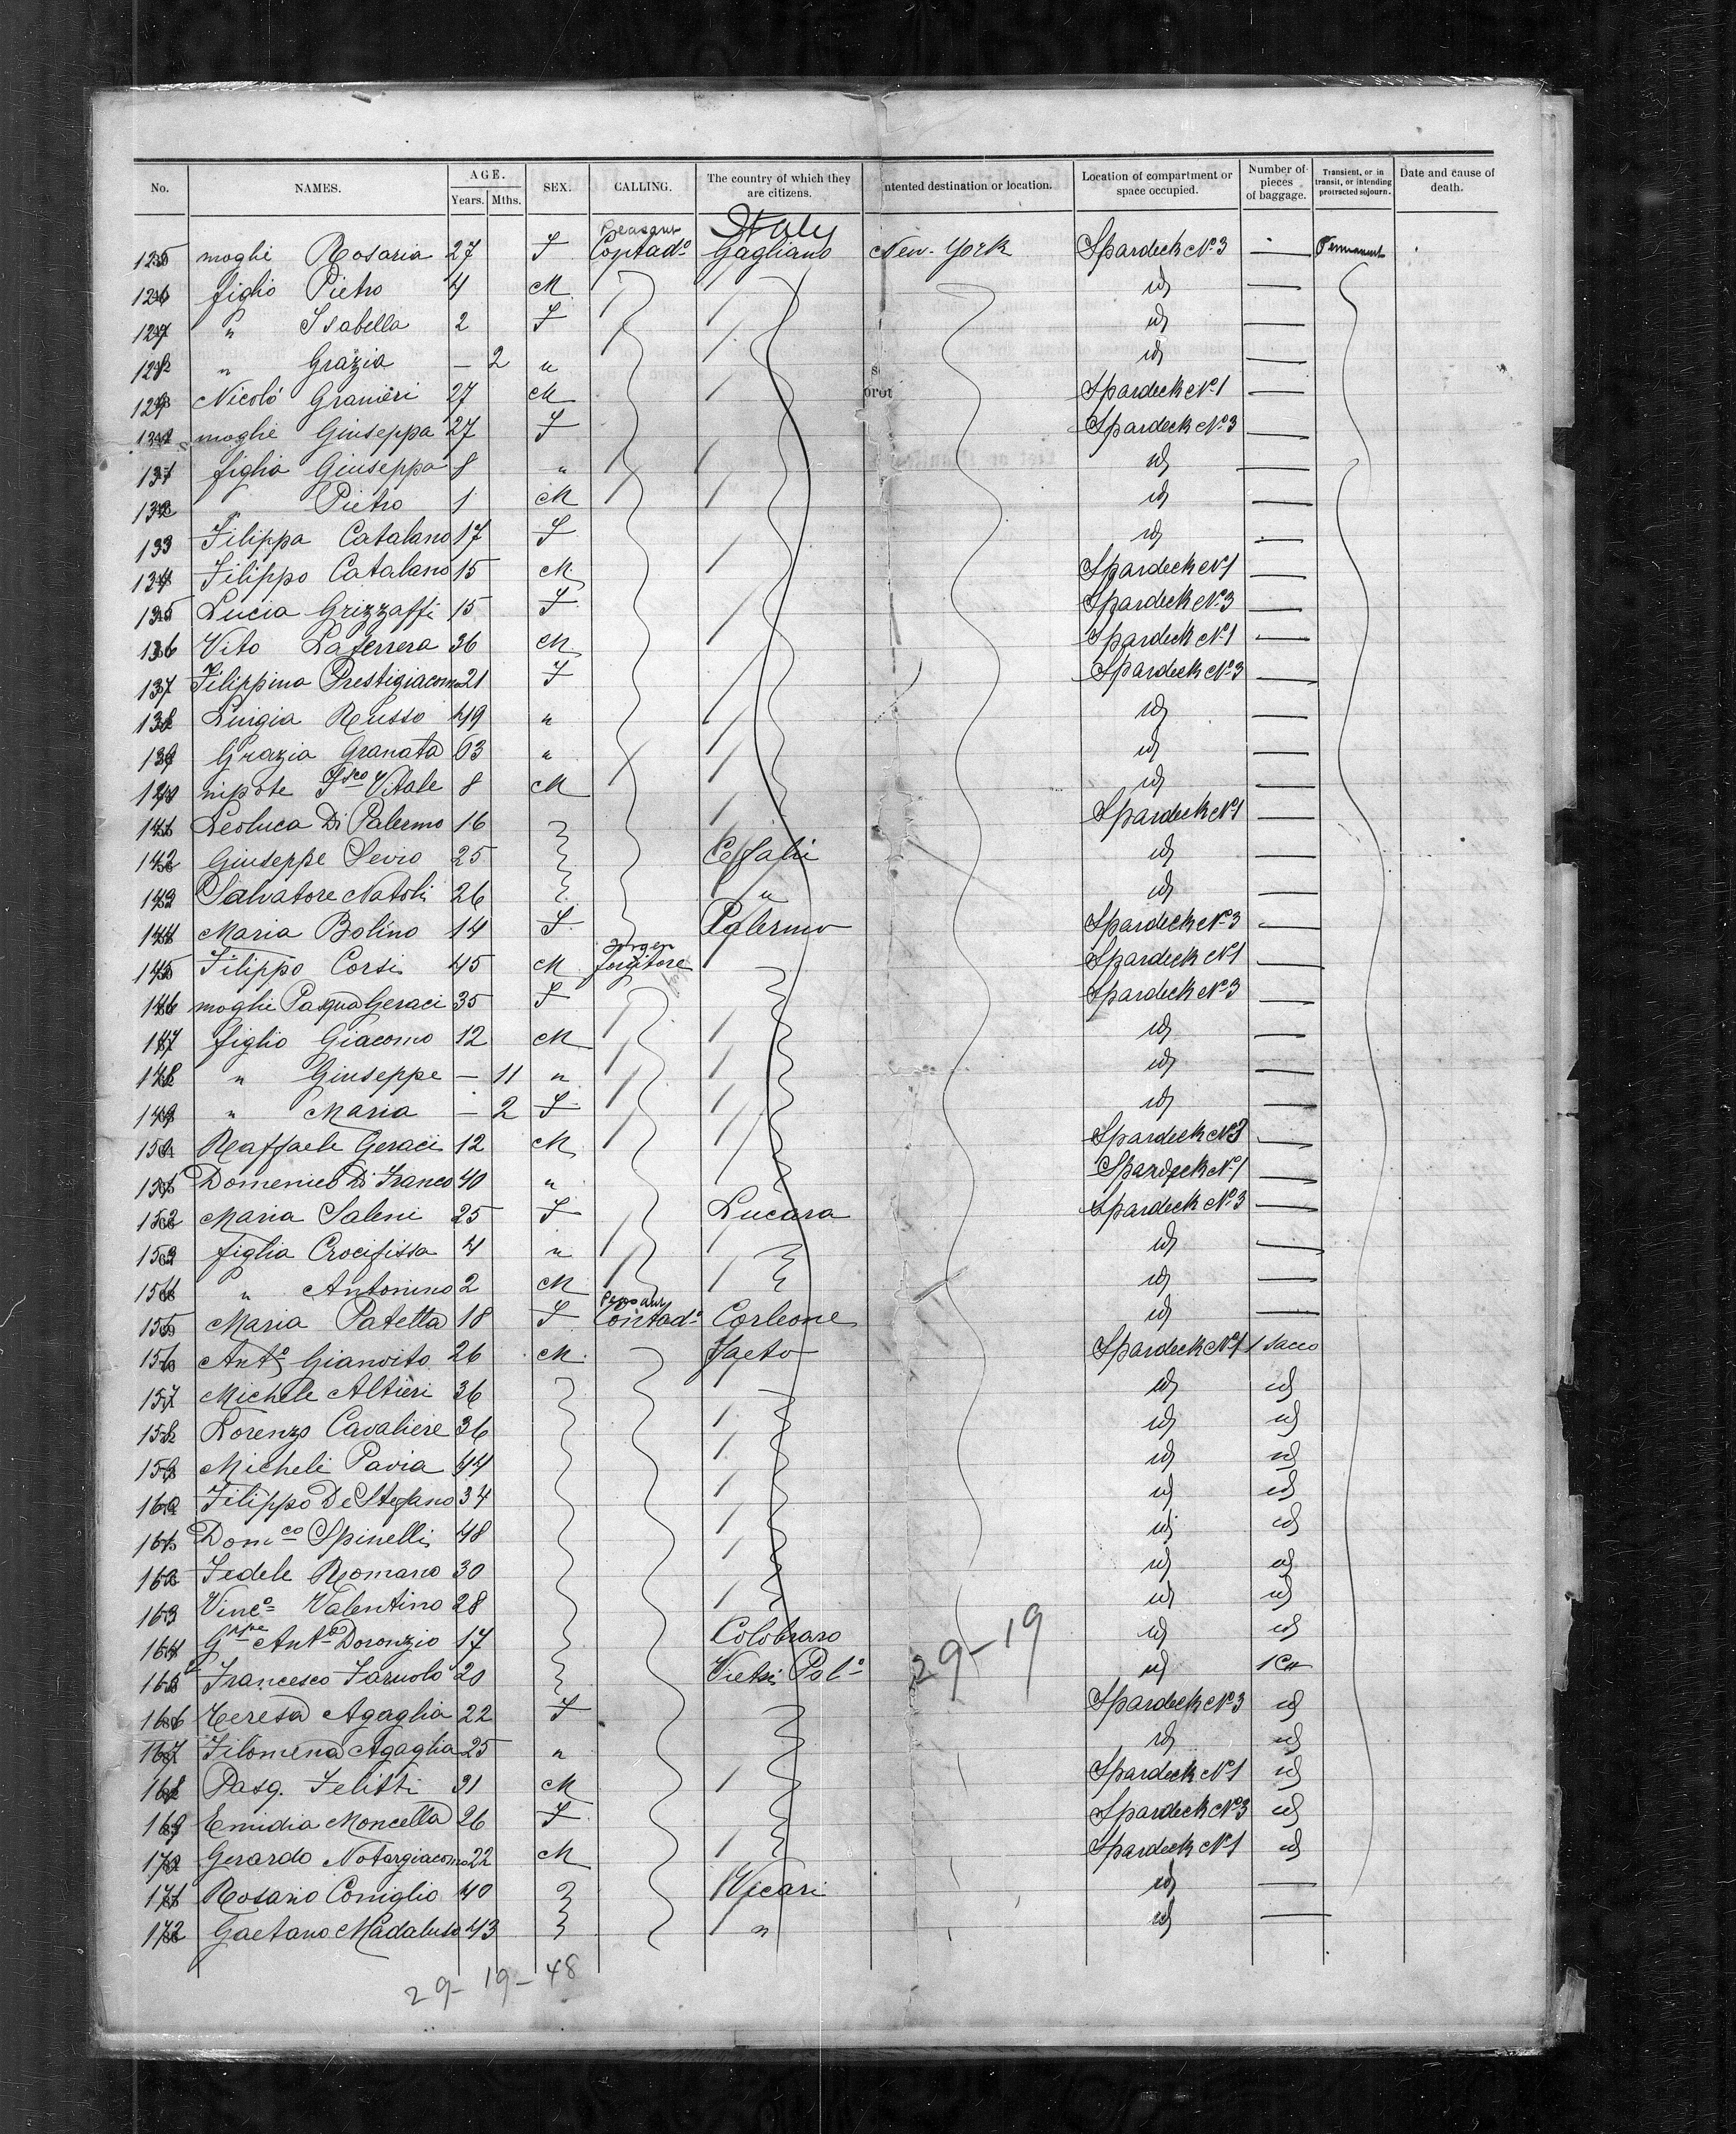 No. NAMES. AGE. Years. Mths. SEX. CALLING. The country of which they are citizens. ntented destination or location. Location of compartment or space occupied. Number of pieces of baggage. Transient, or in transit, or intending protracted sojourn. Date and cause of death.
Peasant Italy
125 moglie Rosaria 27 F Contad.º Gagliano New-York Spardeck Nº3 — Permanent
126 figlio Pietro 4 M id —
127 " Isabella 2 F id —
128 " Grazia — 2 " id —
129 Nicolò Granieri 27 M Spardeck Nº1 —
130 moglie Giuseppa 27 F Spardeck Nº3 —
131 figlia Giuseppa 8 " id —
132 " Pietro 1 M id —
133 Filippa Catalano 17 F id —
134 Filippo Catalano 15 M Spardeck Nº1 —
135 Lucia Grizzaffi 15 F Spardeck Nº3 —
136 Vito Laferrera 36 M Spardeck Nº1 —
137 Filippina Prestigiacomo 21 F Spardeck Nº3 —
138 Luigia Russo 49 " id —
139 Grazia Granata 63 " id —
140 nipote Fsco Vitale 8 M id —
141 Leoluca Di Palermo 16 Spardeck Nº1 —
142 Giuseppe Sevio 25 Ceffalù id —
143 Salvatore Natoli 26 " id —
144 Maria Bolino 14 F Palermo Spardeck Nº3 —
145 Filippo Corsi 45 M forgitore Spardeck Nº1 —
146 moglie Pasqua Geraci 35 F Spardeck Nº3 —
147 figlio Giacomo 12 M id —
148 " Giuseppe — 11 " id —
149 " Maria — 2 F id —
150 Raffaele Geraci 12 M Spardeck Nº3 —
151 Domenico Di Franco 40 " Spardeck Nº1 —
152 Maria Saleni 25 F Lucara Spardeck Nº3 —
153 figlia Crocifissa 4 " id —
154 " Antonino 2 M id —
Peasant
155 Maria Patella 18 F Contad.º Corleone id —
156 Antº Gianvito 26 M Faeto Spardeck Nº1 1 Sacco
157 Michele Altieri 36 id id
158 Lorenzo Cavaliere 36 id id
159 Michele Pavia 44 id id
160 Filippo De Stefano 34 id id
161 Domco Spinelli 48 id id
162 Fedele Romano 30 id id
163 Vincº Valentino 28 id id
164 Gppe Antº Doronzio 17 Colobraro id id
165 Francesco Faruolo 20 Vietri Potº 29-19 id 1 Ca
166 Teresa Agaglia 22 F Spardeck Nº3 id
167 Filomena Agaglia 25 " id id
168 Pasq. Felitti 31 M Spardeck Nº1 id
169 Emidia Moncella 26 F Spardeck Nº3 id
170 Gerardo Notargiacomo 22 M Spardeck Nº1 id
171 Rosario Coniglio 40 Vicari id —
172 Gaetano Madaluso 43 " id —
29-19-48